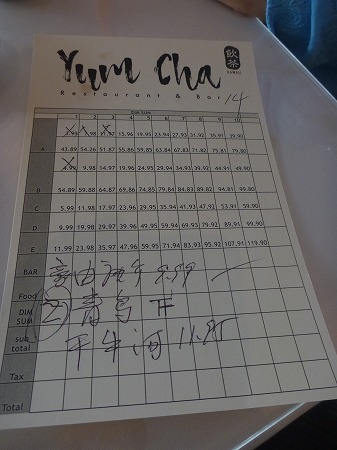 Yum Cha
飲茶
HAWAII
Restaurant & Bar
14
Dim Sum
1 2 3 4 5 6 7 8 9 10
15.96 19.95 23.94 27.93 31.92 35.91 39.90
A 43.89 54.26 51.87 55.86 59.85 63.84 67.83 71.82 75.81 79.80
4.99 9.98 14.97 19.96 24.95 29.94 34.93 39.92 44.91 49.90
B 54.89 59.88 64.87 69.86 74.85 79.84 84.83 89.82 94.81 99.80
C 5.99 11.98 17.97 23.96 29.95 35.94 41.93 47.92 53.91 59.90
D 9.99 19.98 29.97 39.96 49.95 59.94 69.93 79.92 89.91 99.90
E 11.99 23.98 35.97 47.96 59.95 71.94 83.93 95.92 107.91 119.90
BAR 9.99
Food
DIM SUM 2
sub total 干牛河 11.95
Tax
Total